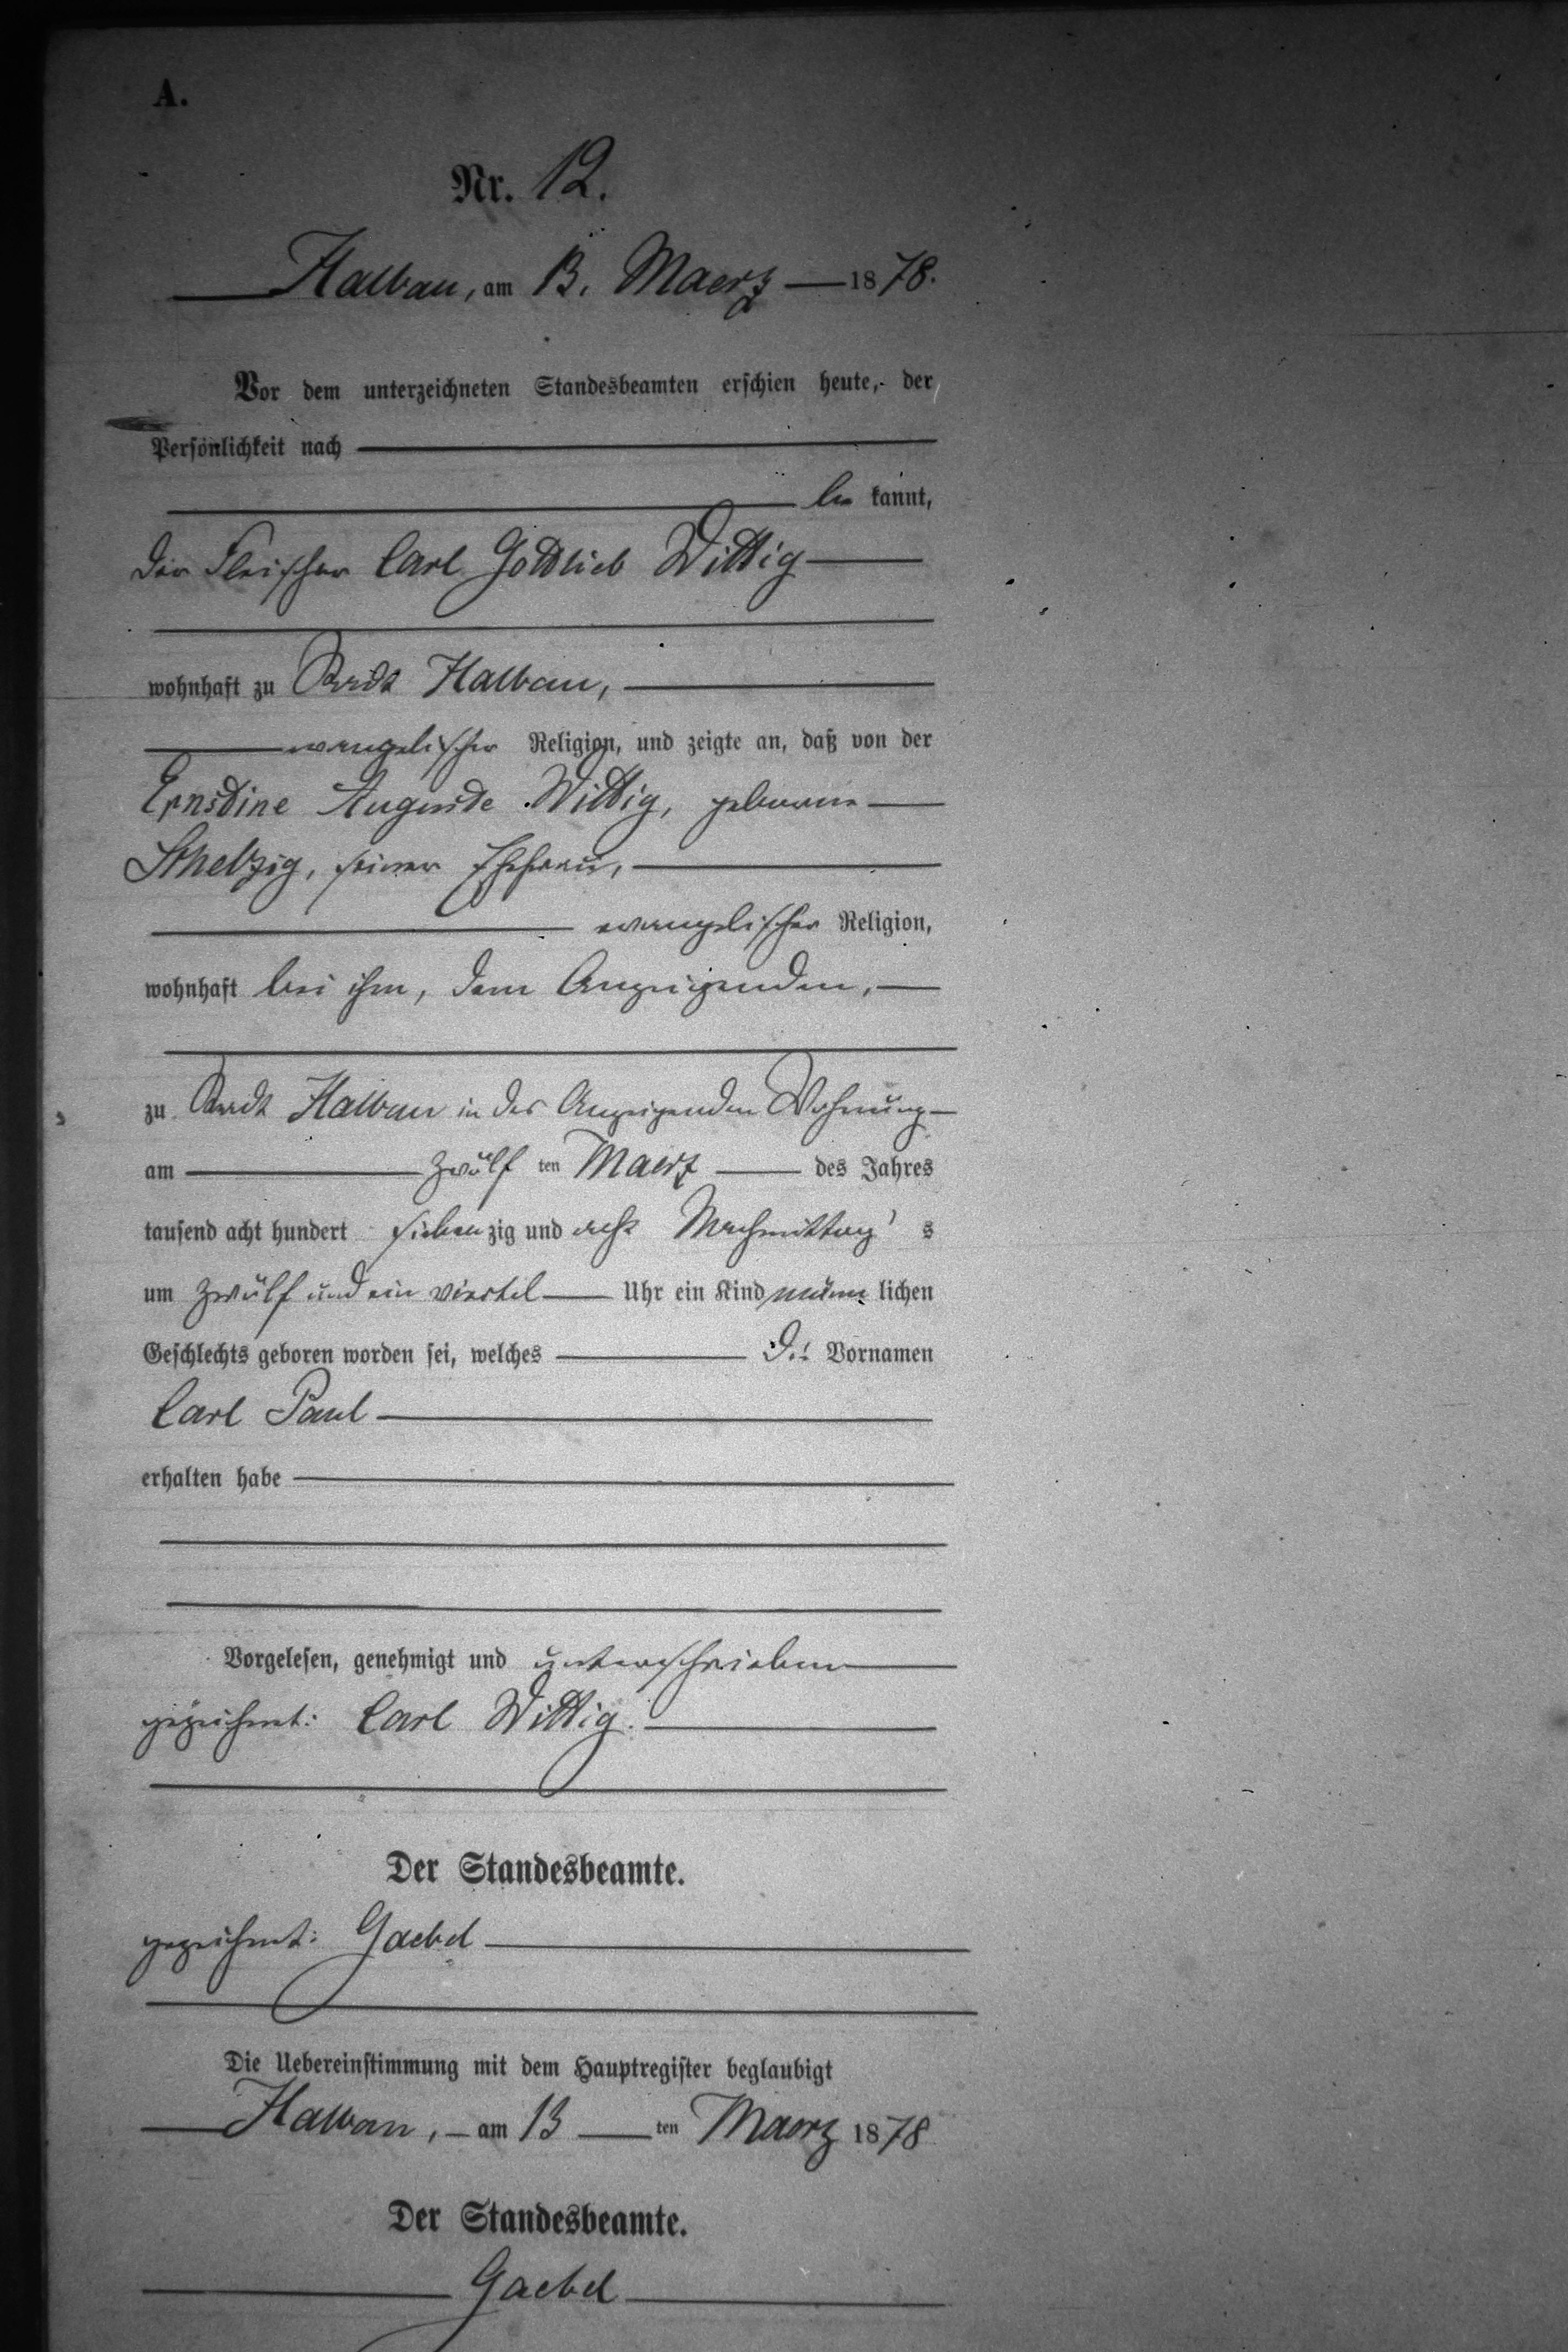 A.
Nr. 12.
Halbau, am 13. Maerz 1878.
Vor dem unterzeichneten Standesbeamten erschien heute, der
Persönlichkeit nach
be kannt,
der Fleischer Carl Gottlieb Wittig
wohnhaft zu Stadt Halbau,
evangelischer Religion, und zeigte an, daß von der
Ernstine Auguste Wittig, geborene
Schelzig, seiner Ehefrau,
evangelischer Religion,
wohnhaft bei ihm, dem Anzeigenden,
zu Stadt Halbau in des Anzeigenden Wohnung
am zwölf ten Maerz des Jahres
tausend acht hundert sieben zig und acht Nachmittag s
um zwölf und ein viertel Uhr ein Kind männ lichen
Geschlechts geboren worden sei, welches die Vornamen
Carl Paul
erhalten habe
Vorgelesen, genehmigt und unterschrieben
gezeichnet: Carl Wittig.
Der Standesbeamte.
gezeichnet: Gaebel
Die Uebereinstimmung mit dem Hauptregister beglaubigt
Halbau, am 13 ten Maerz 1878
Der Standesbeamte.
Gaebel